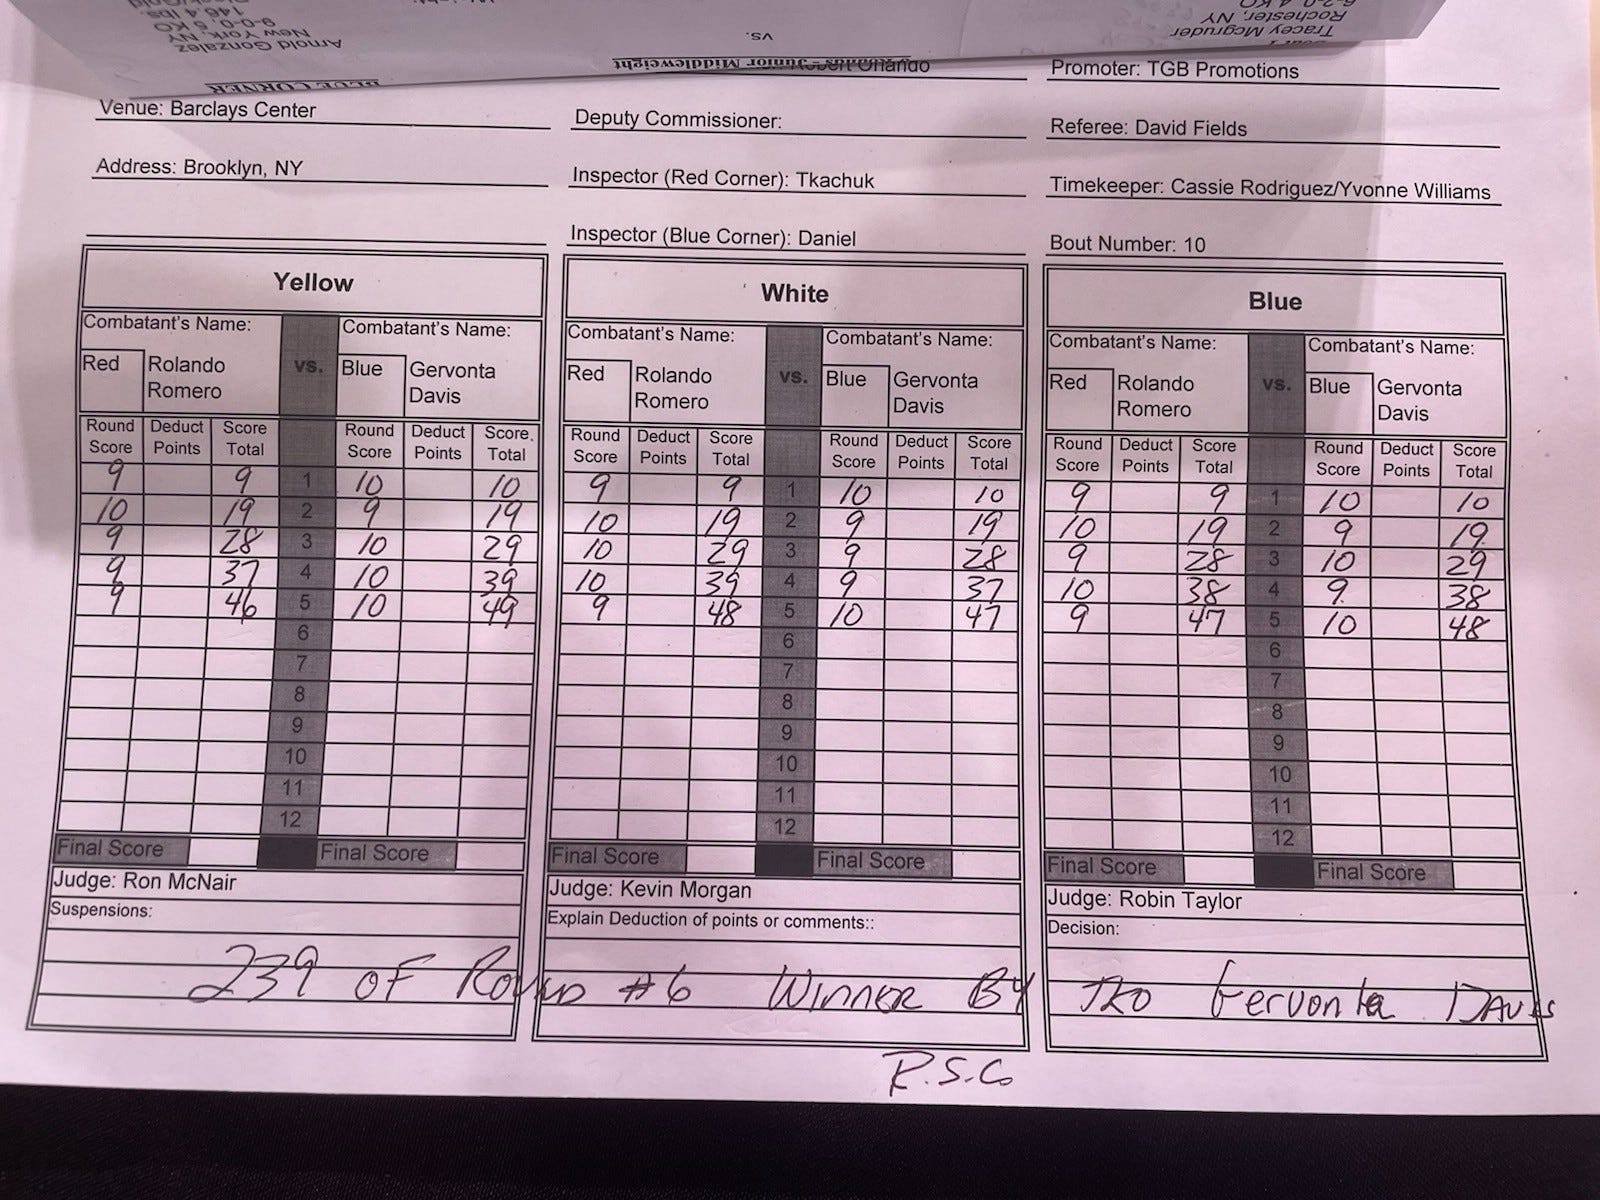 Arnold Gonzalez
New York, NY
9-0-0, 5 KO
146.4 lbs.
BLUE CORNER
vs.
Junior Middleweight
Tracey Mcgruder
Rochester, NY
Orlando
Promoter: TGB Promotions
Venue: Barclays Center
Deputy Commissioner:
Referee: David Fields
Address: Brooklyn, NY
Inspector (Red Corner): Tkachuk
Timekeeper: Cassie Rodriguez/Yvonne Williams
Inspector (Blue Corner): Daniel
Bout Number: 10
Yellow
Combatant's Name: Combatant's Name:
Red Rolando Romero vs. Blue Gervonta Davis
Round Score Deduct Points Score Total Round Score Deduct Points Score Total
9 9 1 10 10
10 19 2 9 19
9 28 3 10 29
9 37 4 10 39
9 46 5 10 49
6
7
8
9
10
11
12
Final Score Final Score
Judge: Ron McNair
Suspensions:
White
Combatant's Name: Combatant's Name:
Red Rolando Romero vs. Blue Gervonta Davis
Round Score Deduct Points Score Total Round Score Deduct Points Score Total
9 9 1 10 10
10 19 2 9 19
10 29 3 9 28
10 39 4 9 37
9 48 5 10 47
6
7
8
9
10
11
12
Final Score Final Score
Judge: Kevin Morgan
Explain Deduction of points or comments::
Blue
Combatant's Name: Combatant's Name:
Red Rolando Romero vs. Blue Gervonta Davis
Round Score Deduct Points Score Total Round Score Deduct Points Score Total
9 9 1 10 10
10 19 2 9 19
9 28 3 10 29
10 38 4 9 38
9 47 5 10 48
6
7
8
9
10
11
12
Final Score Final Score
Judge: Robin Taylor
Decision:
239 OF ROUND #6 WINNER BY TKO Gervonta DAVIS
R.S.C.